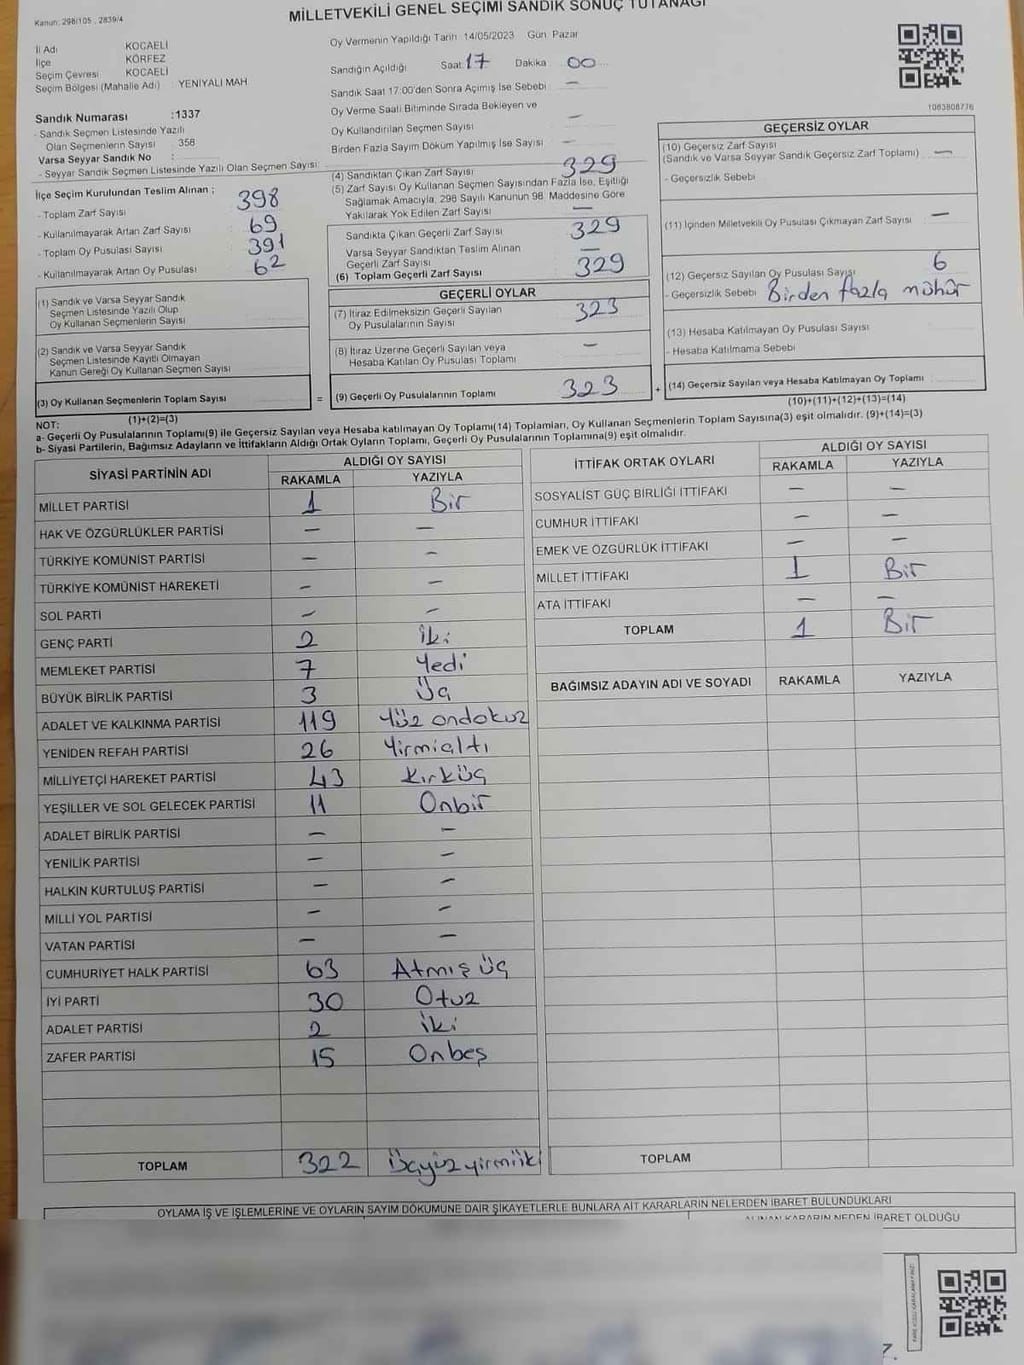 MİLLETVEKİLİ GENEL SEÇİMİ SANDIK SONUÇ TUTANAĞI
Kanun: 298/105, 2839/4
İl Adı KOCAELİ
İlçe KÖRFEZ
Seçim Çevresi KOCAELİ
Seçim Bölgesi (Mahalle Adı) YENİYALI MAH
Oy Vermenin Yapıldığı Tarih 14/05/2023 Gün Pazar
Sandığın Açıldığı Saat 17 Dakika 00
Sandık Saat 17:00'den Sonra Açımış İse Sebebi —
Oy Verme Saati Bitiminde Sırada Bekleyen ve
Oy Kullandırılan Seçmen Sayısı —
Birden Fazla Sayım Döküm Yapılmış İse Sayısı —
Sandık Numarası :1337
- Sandık Seçmen Listesinde Yazılı
Olan Seçmenlerin Sayısı : 358
Varsa Seyyar Sandık No :
- Seyyar Seçmen Listesinde Yazılı Olan Seçmen Sayısı:
İlçe Seçim Kurulundan Teslim Alınan ;
- Toplam Zarf Sayısı 398
- Kullanılmayarak Artan Zarf Sayısı 69
- Toplam Oy Pusulası Sayısı 391
- Kullanılmayarak Artan Oy Pusulası 62
(1) Sandık ve Varsa Seyyar Sandık
Seçmen Listesinde Yazılı Olup
Oy Kullanan Seçmenlerin Sayısı
(2) Sandık ve Varsa Seyyar Sandık
Seçmen Listesinde Kayıtlı Olmayan
Kanun Gereği Oy Kullanan Seçmen Sayısı
(3) Oy Kullanan Seçmenlerin Toplam Sayısı =
(1)+(2)=(3)
(4) Sandıktan Çıkan Zarf Sayısı 329
(5) Zarf Sayısı Oy Kullanan Seçmen Sayısından Fazla İse, Eşitliği
Sağlamak Amacıyla, 298 Sayılı Kanunun 98. Maddesine Göre
Yakılarak Yok Edilen Zarf Sayısı —
Sandıkta Çıkan Geçerli Zarf Sayısı 329
Varsa Seyyar Sandıktan Teslim Alınan
Geçerli Zarf Sayısı —
(6) Toplam Geçerli Zarf Sayısı 329
GEÇERLİ OYLAR
(7) İtiraz Edilmeksizin Geçerli Sayılan
Oy Pusulalarının Sayısı 323
(8) İtiraz Üzerine Geçerli Sayılan veya
Hesaba Katılan Oy Pusulası Toplamı —
(9) Geçerli Oy Pusulalarının Toplamı 323 +
1063808776
GEÇERSİZ OYLAR
(10) Geçersiz Zarf Sayısı
(Sandık ve Varsa Seyyar Sandık Geçersiz Zarf Toplamı) —
- Geçersizlik Sebebi
(11) İçinden Milletvekili Oy Pusulası Çıkmayan Zarf Sayısı —
(12) Geçersiz Sayılan Oy Pusulası Sayısı 6
- Geçersizlik Sebebi Birden fazla mühür
(13) Hesaba Katılmayan Oy Pusulası Sayısı
- Hesaba Katılmama Sebebi
(14) Geçersiz Sayılan veya Hesaba Katılmayan Oy Toplamı
(10)+(11)+(12)+(13)=(14)
NOT:
a- Geçerli Oy Pusulalarının Toplamı(9) ile Geçersiz Sayılan veya Hesaba katılmayan Oy Toplamı(14) Toplamları, Oy Kullanan Seçmenlerin Toplam Sayısına(3) eşit olmalıdır. (9)+(14)=(3)
b- Siyasi Partilerin, Bağımsız Adayların ve İttifakların Aldığı Ortak Oyların Toplamı, Geçerli Oy Pusulalarının Toplamına(9) eşit olmalıdır.
SİYASİ PARTİNİN ADI ALDIĞI OY SAYISI
RAKAMLA YAZIYLA
MİLLET PARTİSİ 1 Bir
HAK VE ÖZGÜRLÜKLER PARTİSİ — —
TÜRKİYE KOMÜNİST PARTİSİ — —
TÜRKİYE KOMÜNİST HAREKETİ — —
SOL PARTİ — —
GENÇ PARTİ 2 İki
MEMLEKET PARTİSİ 7 Yedi
BÜYÜK BİRLİK PARTİSİ 3 Üç
ADALET VE KALKINMA PARTİSİ 119 Yüz ondokuz
YENİDEN REFAH PARTİSİ 26 Yirmialtı
MİLLİYETÇİ HAREKET PARTİSİ 43 Kırküç
YEŞİLLER VE SOL GELECEK PARTİSİ 11 Onbir
ADALET BİRLİK PARTİSİ — —
YENİLİK PARTİSİ — —
HALKIN KURTULUŞ PARTİSİ — —
MİLLİ YOL PARTİSİ — —
VATAN PARTİSİ — —
CUMHURİYET HALK PARTİSİ 63 Atmış üç
İYİ PARTİ 30 Otuz
ADALET PARTİSİ 2 İki
ZAFER PARTİSİ 15 Onbeş
TOPLAM 322 Üçyüz yirmiiki
İTTİFAK ORTAK OYLARI ALDIĞI OY SAYISI
RAKAMLA YAZIYLA
SOSYALİST GÜÇ BİRLİĞİ İTTİFAKI — —
CUMHUR İTTİFAKI — —
EMEK VE ÖZGÜRLÜK İTTİFAKI — —
MİLLET İTTİFAKI 1 Bir
ATA İTTİFAKI — —
TOPLAM 1 Bir
BAĞIMSIZ ADAYIN ADI VE SOYADI RAKAMLA YAZIYLA
TOPLAM
OYLAMA İŞ VE İŞLEMLERİNE VE OYLARIN SAYIM DÖKÜMÜNE DAİR ŞİKAYETLERLE BUNLARA AİT KARARLARIN NELERDEN İBARET BULUNDUKLARI
ALINAN KARARIN NEDEN İBARET OLDUĞU